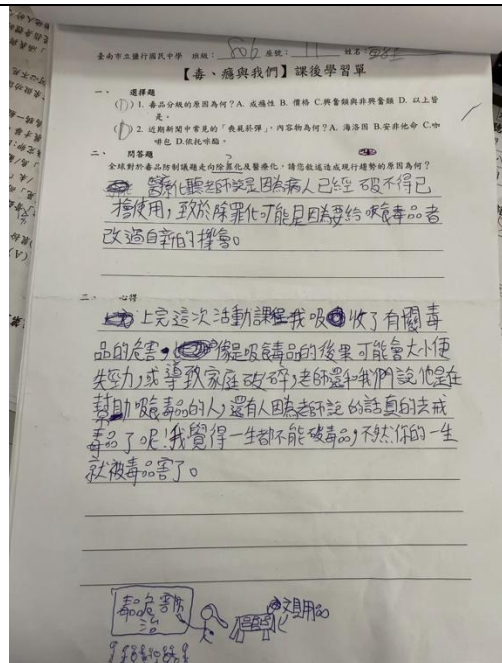 臺南市立鹽行國民中學 班級：806 座號：11 姓名：
【毒、癮與我們】課後學習單
一、 選擇題
(D) 1. 毒品分級的原因為何？A. 成癮性 B. 價格 C.興奮類與非興奮類 D. 以上皆
是。
(D) 2. 近期新聞中常見的「喪屍菸彈」，內容物為何？A. 海洛因 B.安非他命 C.咖
啡包 D.依托咪酯。
二、 問答題
全球對於毒品防制議題走向除罪化及醫療化，請您敘述造成現行趨勢的原因為何？
醫療化聽老師說是因為病人已經破不得已
才會使用，致於除罪化可能是因為要給吸毒品者
改過自新的機會。
三、 心得
上完這次活動課程我吸收了有關毒
品的危害，像是吸食毒品的後果可能會大小便
失經力，或導致家庭破碎，老師還和我們說他是在
幫助吸食毒品的人，還有人因為老師說的話真的去戒
毒品了呢！我覺得一生都不能破毒品，不然你的一生
就被毒品害了。
毒品危害防
治
文具用品